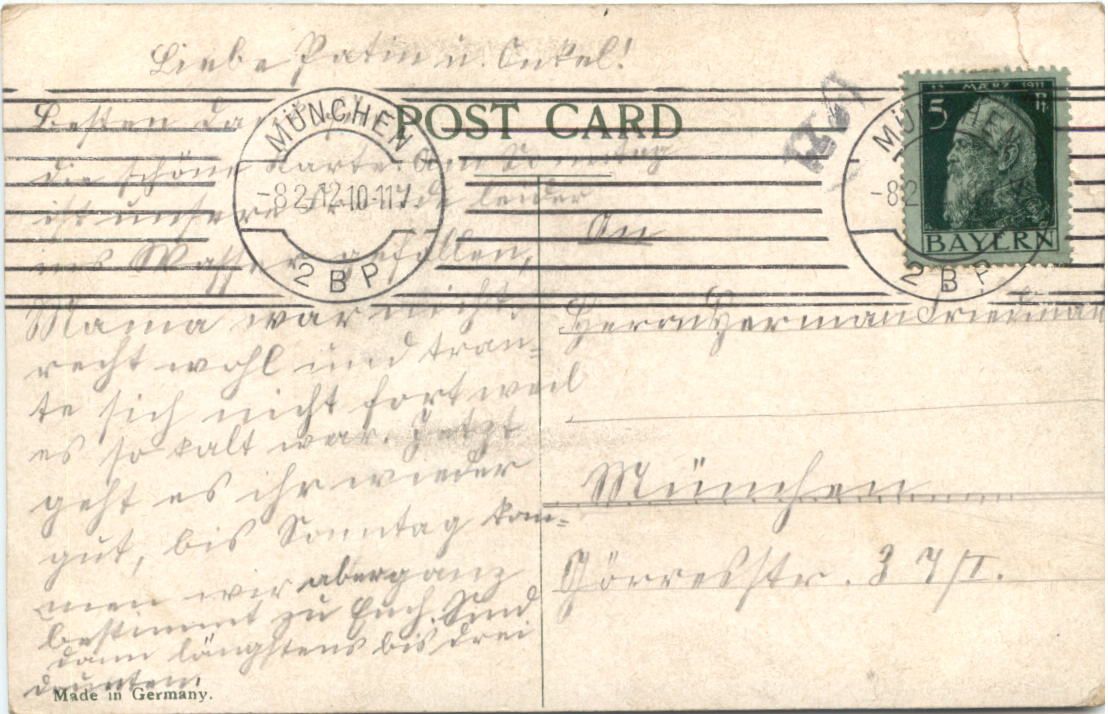 Liebe Patin u. Onkel!
POST CARD
Besten Dank
die schöne Karte. Am Sonntag
ist unsere Freude leider
ins Wasser gefallen,
Mama war nicht
recht wohl und trau=
te sich nicht fort weil
es so kalt war. Jetzt
geht es ihr wieder
gut, bis Sonntag kom=
men wir aber ganz
bestimmt zu Euch. Sind
dann längstens bis drei
drunten.
Made in Germany.
MÜNCHEN
-8.2.12.10-11V
2 B P
MÜNCHEN
-8 2
2 B P
12. MÄRZ 1911
5
BAYERN
An
Herrn Herman
München
Görresstr. 37/I.